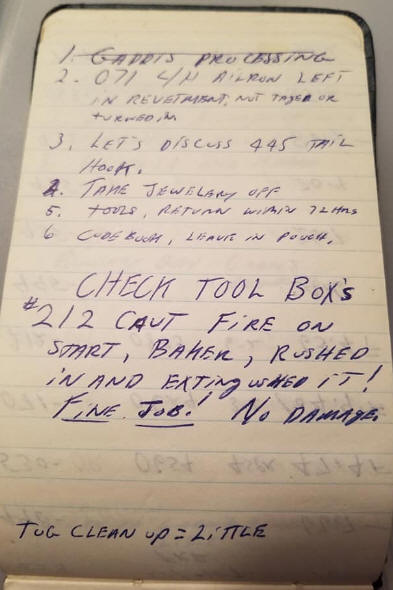 1. GADDIS PROCESSING
2. 071 L/H AILRON LEFT
IN REVETMENT, NOT TAGED OR
TURNED IN
3. LET'S DISCUSS 445 TAIL
HOOK.
4. TAKE JEWELARY OFF
5. TOOLS, RETURN WITHIN 72 HRS
6 CODE BOOK, LEAVE IN POUCH.
CHECK TOOL BOX'S
#212 CAUT FIRE ON
START, BAKER, RUSHED
IN AND EXTINGUISHED IT!
FINE JOB! NO DAMAGE.
TUG CLEAN UP = LITTLE